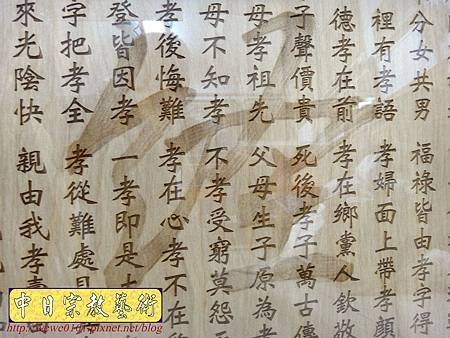 分女共男 福祿皆由孝字得
裡有孝語 孝婦面上帶孝顏
德孝在前 孝在鄉黨人欽敬
子聲價貴 死後孝子萬古傳
母孝祖先 父母生子原為孝
母不知孝 不孝受窮莫怨
孝後悔難 孝在心孝不在
登皆因孝 一孝即是
字把孝全 孝從難處見
來光陰快 親由我孝
中日宗教藝術